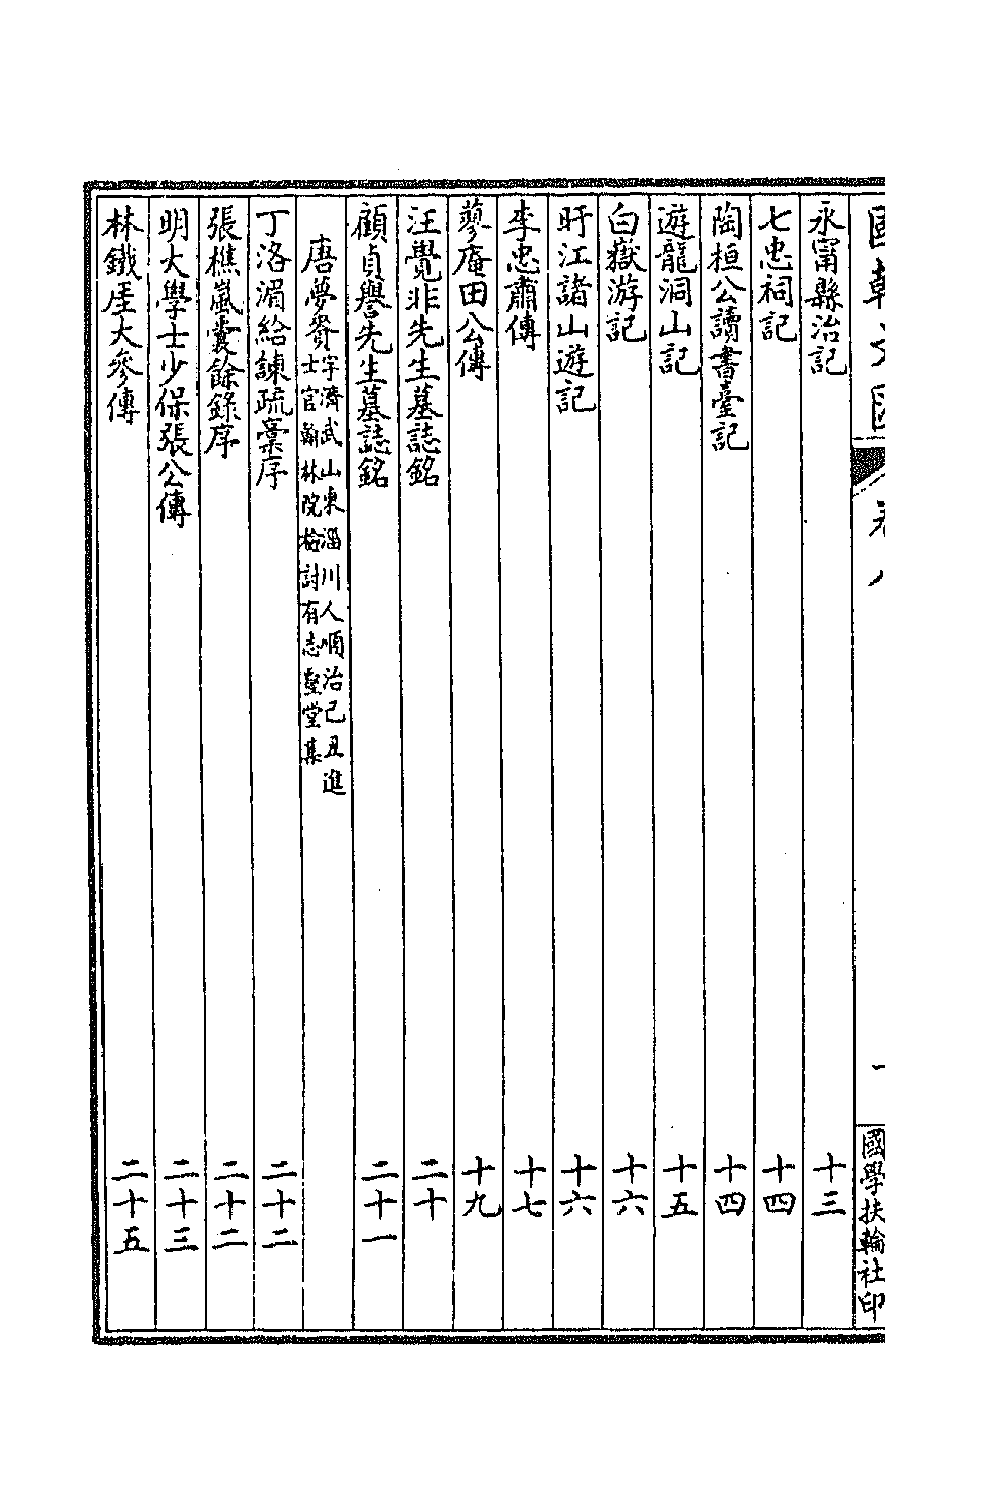 國朝文匯
卷八
一
國學扶輪社印
永甯縣治記 十三
七忠祠記 十四
陶桓公讀書臺記 十四
遊龍洞山記 十五
白嶽游記 十六
盱江諸山遊記 十六
李忠肅傳 十七
蓼庵田公傳 十九
汪覺非先生墓誌銘 二十
顧貞譽先生墓誌銘 二十一
唐夢賚字濟武山東淄川人順治己丑進士官翰林院檢討有志壑堂集
丁洛湄給諫疏稾序 二十二
張樵嵐囊餘錄序 二十二
明大學士少保張公傳 二十三
林鐵厓大參傳 二十五